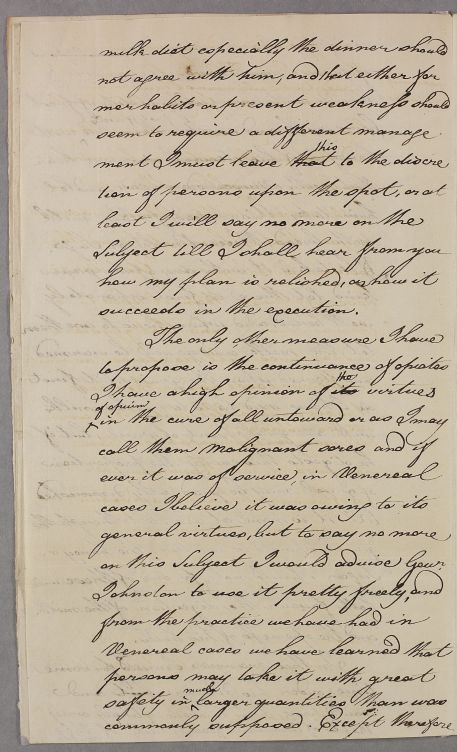 milk diet especially the dinner should
not agree with him, and that either for
mer habits or present weakness should
seem to require a different manage
this
ment I must leave that to the discre
tion of persons upon the spot, or at
least I will say no more on the
Subject till I shall hear from you
how my plan is relished, or how it
succeeds in the execution.
The only other measure I have
to propose is the continuance of opiates
the
I have a high opinion of its virtues
of opium
^ in the cure of all untoward or as I may
call them Malignant sores and if
ever it was of service in Venereal
cases I believe it was owing to its
general virtues, but to say no more
on this Subject I would advise Govr.
Johnston to use it pretty freely, and
from the practice we have had in
Venereal cases we have learned that
persons may take it with great
much
safety in ^ larger quantities than was
commonly supposed. Except therefore